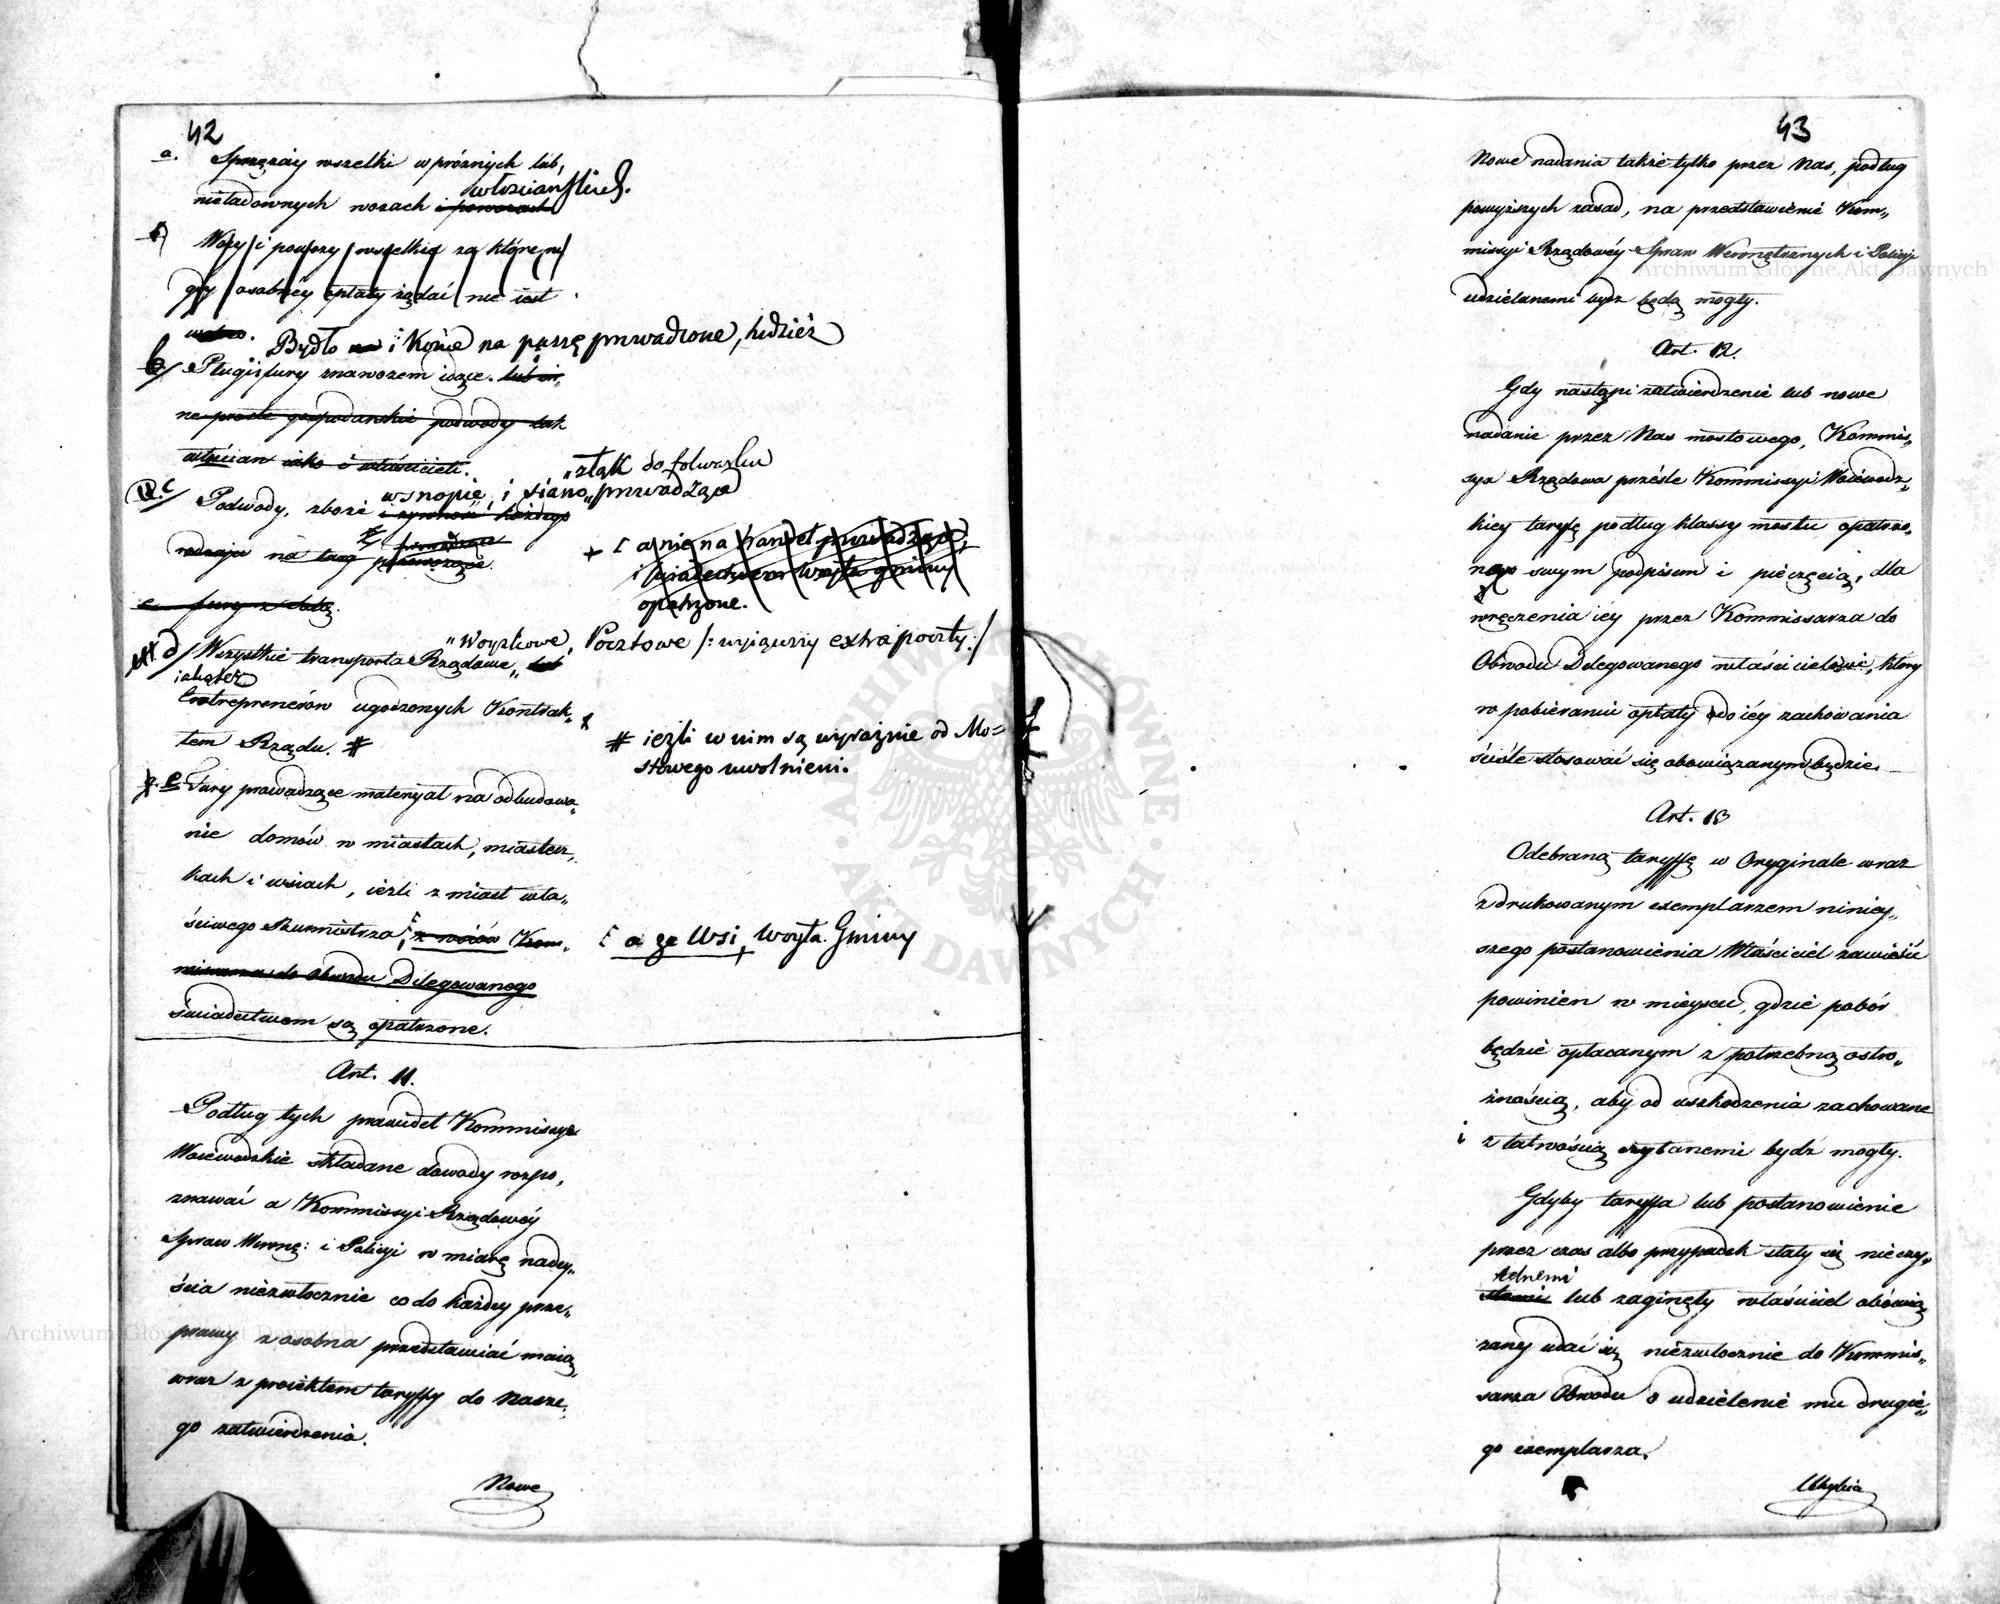 42
a. Sprzężay wszelki w próżnych lub,
włościańskich.
nieładownych wozach i powozach
b) Wozy i powozy wszelkie za które ni
gdy osobnéy opłaty żądać nie iest
wolno. Bydło i Konie na paszę prowadzone, tudzież
b/ Pługi i fury z nawozem idące. lub in,,
ne proste gospodarskie podwody tak
włościan iako i właścicieli.
„z łąk do folwarku
w snopie, i siano „prowadzące
c/ Podwody, zboże i żywność każdego
rodzaju na targ prowadzące
przewożące.
+ [ a nie na handel prowadzące,
i świadectwem Woyta gminy
opatrzone.
e fury z solą.
„Woyskowe, Pocztowe /: wyiąwszy extra poczty :/
d/ Wszystkie transporta Rządowe „ lub
iakoteż
Entreprenerów ugodzonych Kontrak„
tem Rządu. #
# ieżli w nim są wyraźnie od Mo=
stowego uwolnieni.
e Fury prowadzące materyał na odbudowa„
nie domów w miastach, miastecz„
kach i wsiach, ieżli z miast wła„
ściwego Burmistrza, [ z wsiów Kom„
[ a ze Wsi, Woyta Gminy
missarza do Obwodu Delegowanego
świadectwem są opatrzone.
Art. 11.
Podług tych prawideł Kommissye
Woiewódzkie składane dowody rozpo„
znawać a Kommissyi Rządowéy
Spraw Wewnę: i Policyi w miarę nadey„
ścia niezwłocznie co do każdey prze„
prawy z osobna przedstawiać maią
wraz z proiektem taryffy do Nasze„
go zatwierdzenia.
Nowe
43
Nowe nadania także tylko przez Nas, podług
powyższych zasad, na przedstawienie Kom„
missyi Rządowéy Spraw Wewnętrznych i Policyi
udzielanemi bydź będą mogły.
Art. 12.
Gdy nastąpi zatwierdzenie lub nowe
nadanie przez Nas mostowego, Kommis„
sya Rządowa prześle Kommissyi Woiewódz„
kiey taryfę podług klassy mostu opatrzo„
ną swym podpisem i pieczęcią, dla
wręczenia iey przez Kommissarza do
Obwodu Delegowanego właścicielowi, który
w pobieraniu opłaty do iéy zachowania
ściśle stosować się obowiązanym będzie.
Art. 13
Odebraną taryffę w Oryginale wraz
z drukowanym exemplarzem niniey„
szego postanowienia Właściciel zawiesić
powinien w mieyscu, gdzie pobór
będzie opłacanym z potrzebną ostro„
żnością, aby od uszkodzenia zachowane
i z łatwością czytanemi bydź mogły.
Gdyby taryffa lub postanowienie
przez czas albo przypadek stały się nieczy„
telnemi
lub zaginęły właściciel obowią
zany udać się niezwłocznie do Kommis„
sarza Obwodu o udzielenie mu drugie„
go exemplarza.
Uchybia
Archiwum Główne Akt Dawnych
Archiwum Główne Akt Dawnych
ARCHIWUM GŁÓWNE · AKT DAWNYCH ·